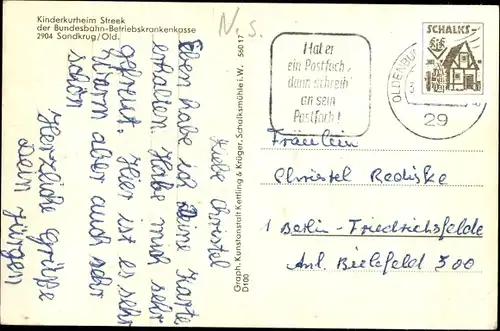 Kinderkurheim Streek
der Bundesbahn-Betriebskrankenkasse
2904 Sandkrug/Old.
N. S.
Liebe Christel
Eben habe ich Deine Karte
erhalten. Habe mich sehr
gefreut. Hier ist es sehr
warm aber auch sehr
schön
Herzliche Grüße
Dein Jürgen
56017
Graph. Kunstanstalt Kertling & Krüger, Schalksmühle i. W.
D100
Hat er
ein Postfach,
dann schreib'
an sein
Postfach!
OLDENBU
29
SCHALKS-
Fräulein
Christel Rediske
1 Berlin-Friedrichsfelde
Anl. Bielefeld 300